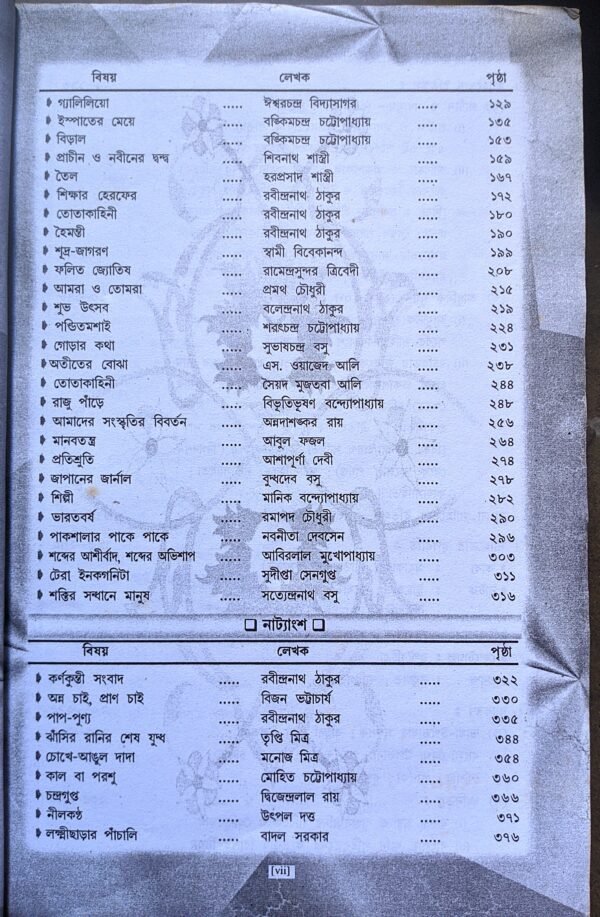 বিষয় লেখক পৃষ্ঠা
গ্যালিলিয়ো ..... ঈশ্বরচন্দ্র বিদ্যাসাগর ..... ১২৯
ইস্পাতের মেয়ে ..... বঙ্কিমচন্দ্র চট্টোপাধ্যায় ..... ১৩৫
বিড়াল ..... বঙ্কিমচন্দ্র চট্টোপাধ্যায় ..... ১৫৩
প্রাচীন ও নবীনের দ্বন্দ্ব ..... শিবনাথ শাস্ত্রী ..... ১৫৯
তৈল ..... হরপ্রসাদ শাস্ত্রী ..... ১৬৭
শিক্ষার হেরফের ..... রবীন্দ্রনাথ ঠাকুর ..... ১৭২
তোতাকাহিনী ..... রবীন্দ্রনাথ ঠাকুর ..... ১৮০
হৈমন্তী ..... রবীন্দ্রনাথ ঠাকুর ..... ১৯০
শূদ্র-জাগরণ ..... স্বামী বিবেকানন্দ ..... ১৯৯
ফলিত জ্যোতিষ ..... রামেন্দ্রসুন্দর ত্রিবেদী ..... ২০৮
আমরা ও তোমরা ..... প্রমথ চৌধুরী ..... ২১৫
শুভ উৎসব ..... বলেন্দ্রনাথ ঠাকুর ..... ২১৯
পণ্ডিতমশাই ..... শরৎচন্দ্র চট্টোপাধ্যায় ..... ২২৪
গোড়ার কথা ..... সুভাষচন্দ্র বসু ..... ২৩১
অতীতের বোঝা ..... এস. ওয়াজেদ আলি ..... ২৩৮
তোতাকাহিনী ..... সৈয়দ মুজতবা আলি ..... ২৪৪
রাজু পাঁড়ে ..... বিভূতিভূষণ বন্দ্যোপাধ্যায় ..... ২৪৮
আমাদের সংস্কৃতির বিবর্তন ..... অন্নদাশঙ্কর রায় ..... ২৫৬
মানবতন্ত্র ..... আবুল ফজল ..... ২৬৪
প্রতিশ্রুতি ..... আশাপূর্ণা দেবী ..... ২৭৪
জাপানের জার্নাল ..... বুদ্ধদেব বসু ..... ২৭৮
শিল্পী ..... মানিক বন্দ্যোপাধ্যায় ..... ২৮২
ভারতবর্ষ ..... রমাপদ চৌধুরী ..... ২৯০
পাকশালার পাকে পাকে ..... নবনীতা দেবসেন ..... ২৯৬
শব্দের আশীর্বাদ, শব্দের অভিশাপ ..... আবিরলাল মুখোপাধ্যায় ..... ৩০৩
টেরা ইনকগনিটা ..... সুদীপ্তা সেনগুপ্ত ..... ৩১১
শক্তির সন্ধানে মানুষ ..... সত্যেন্দ্রনাথ বসু ..... ৩১৬
❑ নাট্যাংশ ❑
বিষয় লেখক পৃষ্ঠা
কর্ণকুন্তী সংবাদ ..... রবীন্দ্রনাথ ঠাকুর ..... ৩২২
অন্ন চাই, প্রাণ চাই ..... বিজন ভট্টাচার্য ..... ৩৩০
পাপ-পুণ্য ..... রবীন্দ্রনাথ ঠাকুর ..... ৩৩৫
ঝাঁসির রানির শেষ যুদ্ধ ..... তৃপ্তি মিত্র ..... ৩৪৪
চোখে-আঙুল দাদা ..... মনোজ মিত্র ..... ৩৫৪
কাল বা পরশু ..... মোহিত চট্টোপাধ্যায় ..... ৩৬০
চন্দ্রগুপ্ত ..... দ্বিজেন্দ্রলাল রায় ..... ৩৬৬
নীলকণ্ঠ ..... উৎপল দত্ত ..... ৩৭১
লক্ষ্মীছাড়ার পাঁচালি ..... বাদল সরকার ..... ৩৭৬
[vii]